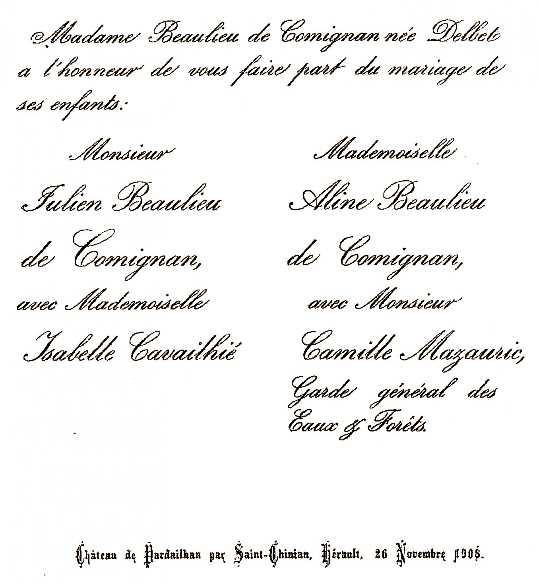 Madame Beaulieu de Comignan née Delbet
a l'honneur de vous faire part du mariage de
ses enfants:
Monsieur
Julien Beaulieu
de Comignan,
avec Mademoiselle
Isabelle Cavailhié
Mademoiselle
Aline Beaulieu
de Comignan,
avec Monsieur
Camille Mazauric,
Garde général des
Eaux & Forêts.
Château de Pardailhan par Saint-Chinian, Hérault, 26 Novembre